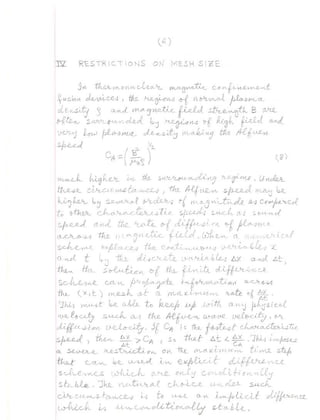 (6)
IV RESTRICTIONS ON MESH SIZE
In thermonuclear magnetic confinement
fusion devices, the regions of normal plasma
density ξ and magnetic field strength B are
often surrounded by regions of high field and
very low plasma density making the Alfven
speed
C_A = (B²/μ₀ξ)^½ (8)
much higher in the surrounding regime. Under
these circumstances, the Alfven speed may be
higher by several orders of magnitude as compared
to other characteristic speeds such as sound
speed and the rate of diffusion of plasma
across the magnetic field. When a numerical
scheme replaces the continuous variables x
and t by the discrete variables Δx and Δt,
then the solution of the finite difference
scheme can propagate information across
the (x,t) mesh at a maximum rate of Δx/Δt.
This must be able to keep up with any physical
velocity such as the Alfven wave velocity, or
diffusion velocity. If C_A is the fastest characteristic
speed, then Δx/Δt > C_A, so that Δt < Δx/C_A. This imposes
a severe restriction on the maximum time step
that can be used in explicit difference
schemes which are only conditionally
stable. The natural choice under such
circumstances is to use an implicit difference
which is unconditionally stable.